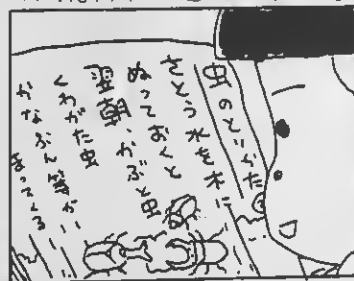 虫のとりかた
さとう水を木に
ぬっておくと
翌朝、かぶと虫
くわがた虫
かなぶん等が
まってくる